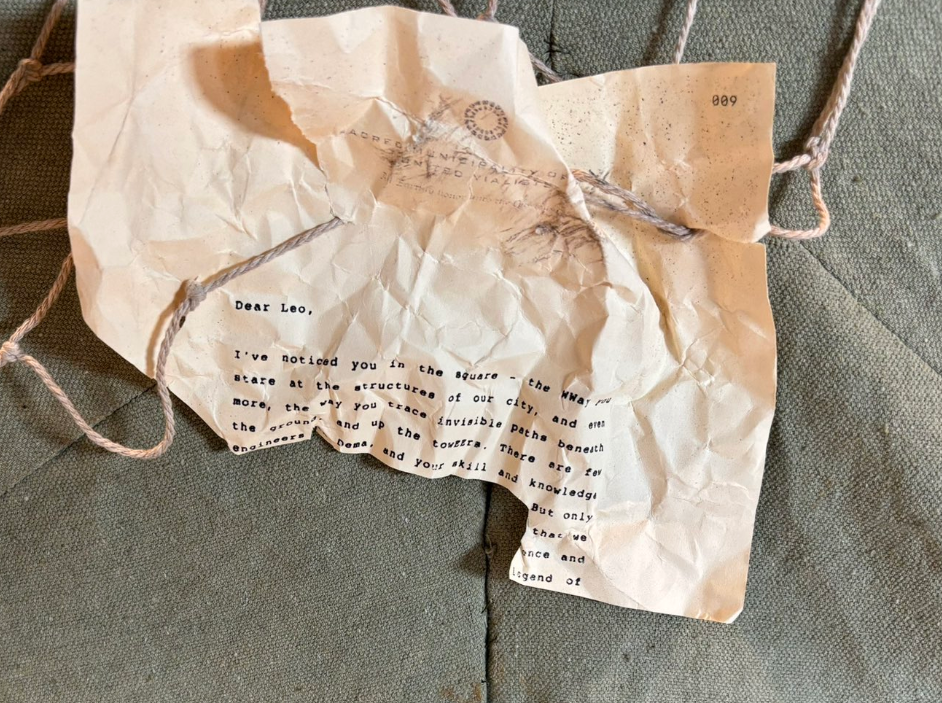 009
Dear Leo,
I've noticed you in the square - the WWay you
stare at the structures of our city, and even
more, the way you trace invisible paths beneath
the ground and up the towEErs. There are few
engineers hema, and your skill and knowledge
But only
that we
once and
legend of